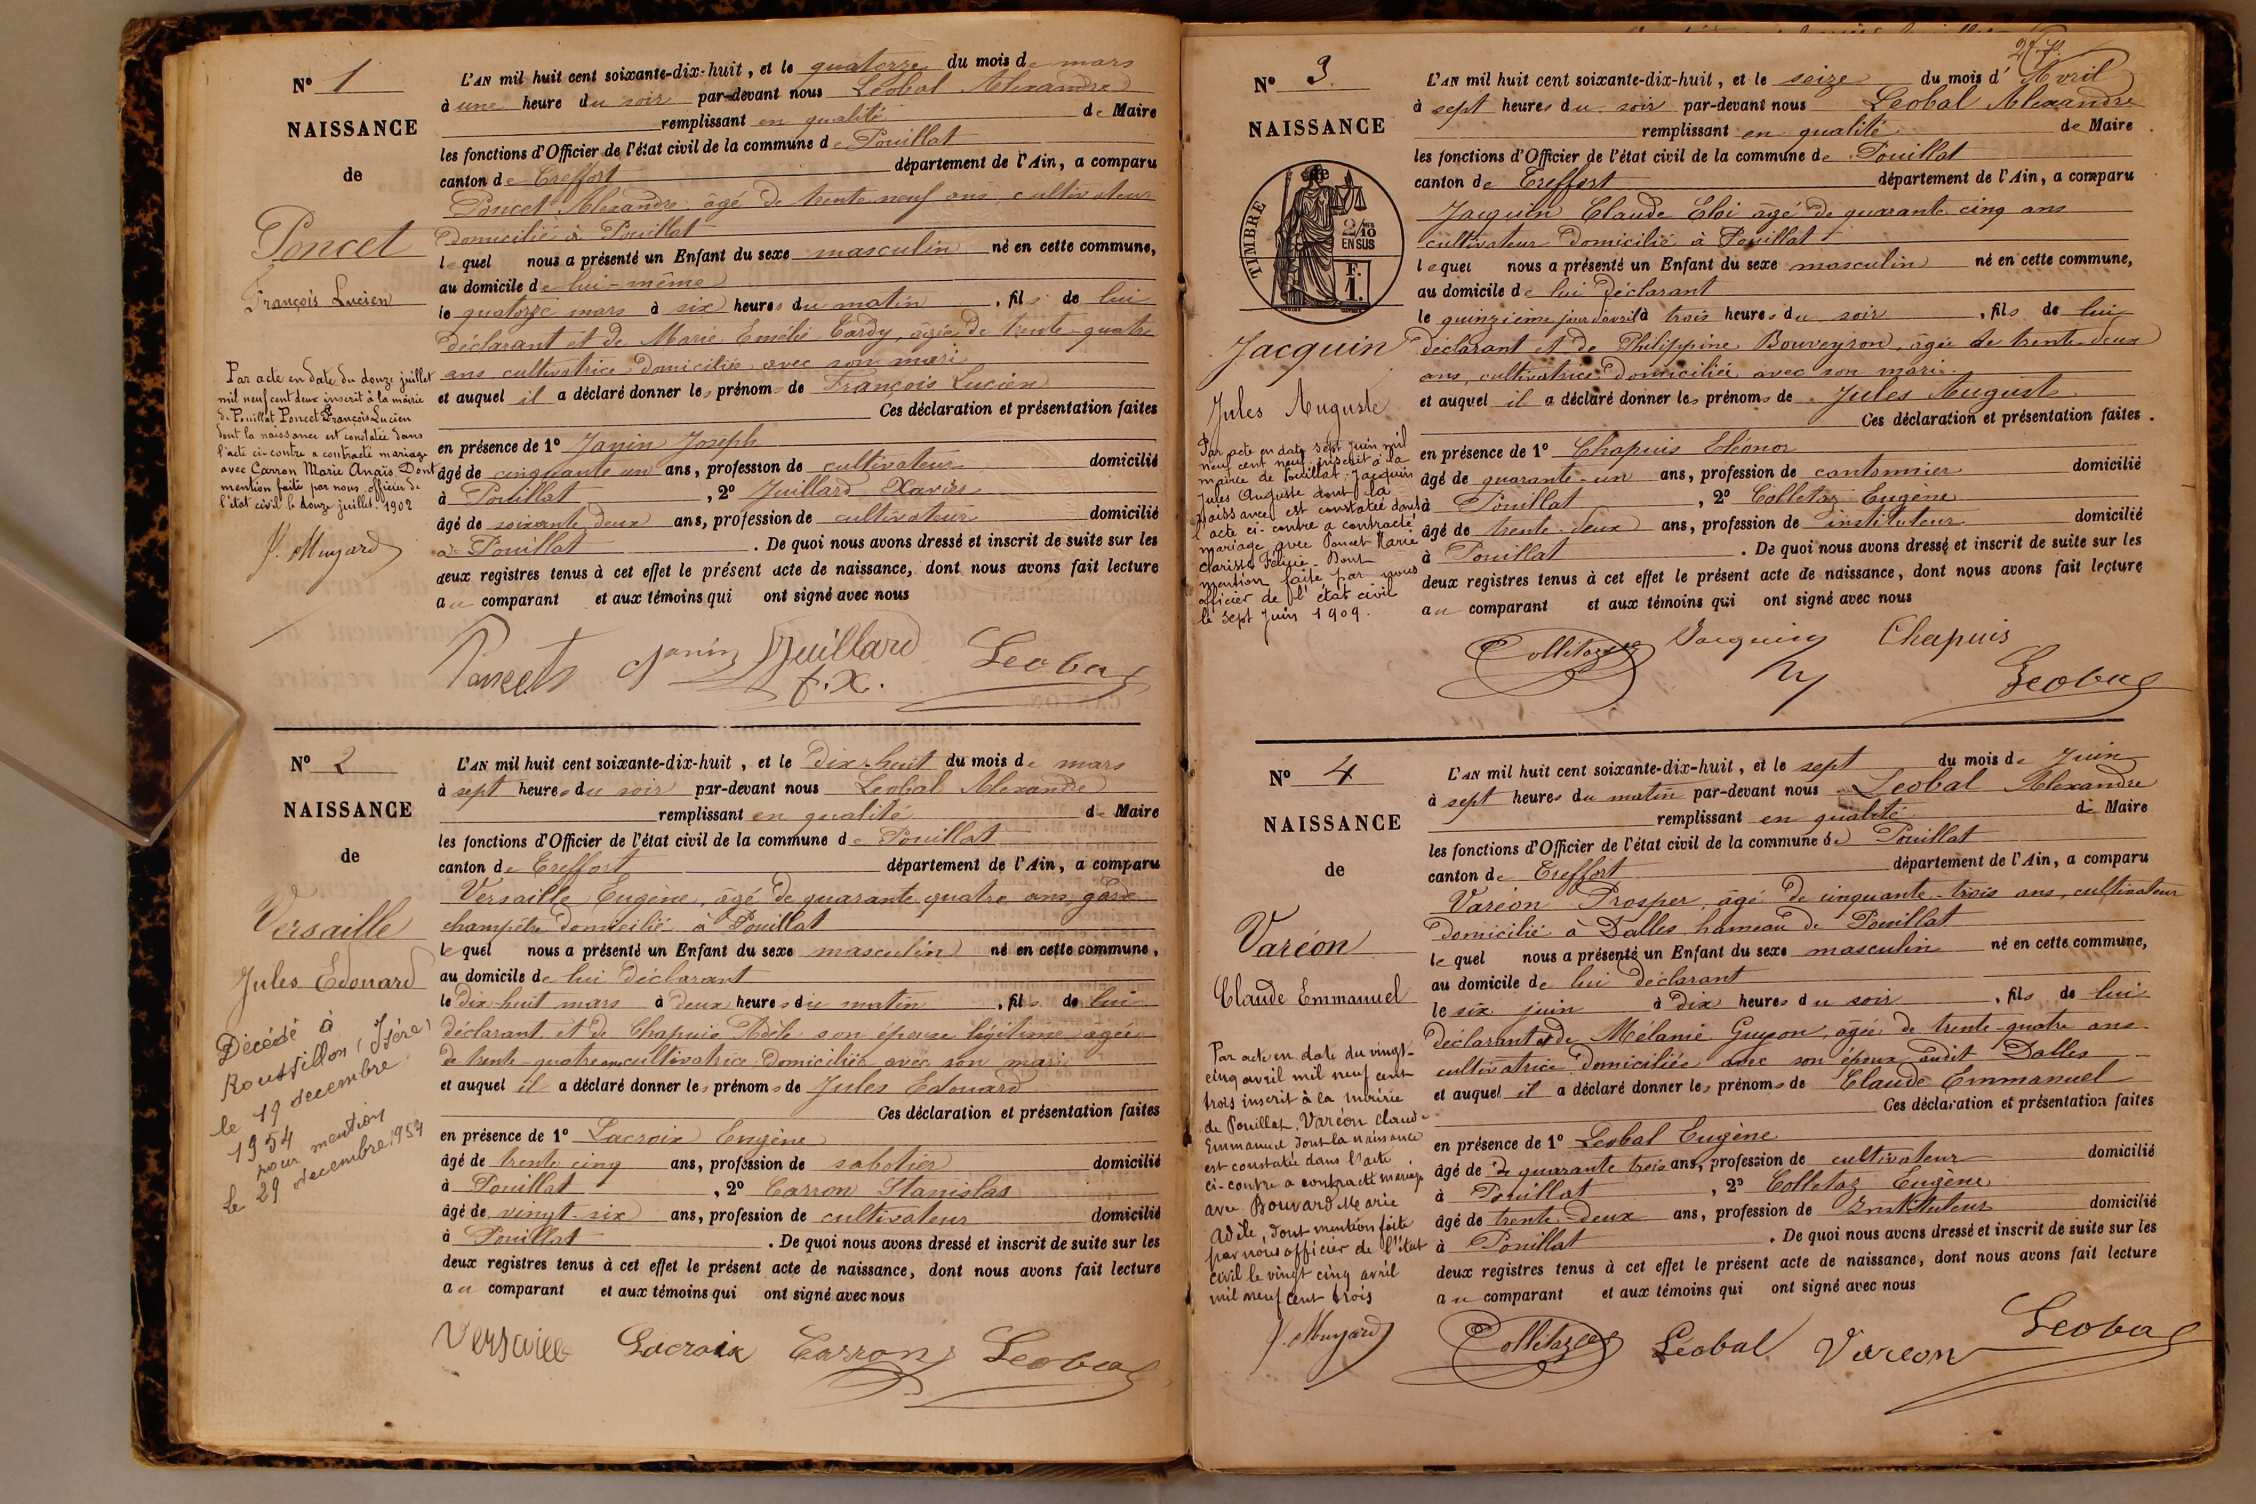 N° 1
NAISSANCE
de
Poncet
François Lucien
Par acte en date du douze juillet
mil neuf cent deux inscrit à la mairie
de Pouillat Poncet François Lucien
dont la naissance est constatée dans
l'acte ci-contre a contracté mariage
avec Carron Marie Anaïs Dont
mention faite par nous officier de
l'état civil le douze juillet 1902
L'AN mil huit cent soixante-dix-huit, et le quatorze du mois de mars
à une heure du soir par-devant nous Léobal Alexandre
remplissant en qualité de Maire
les fonctions d'Officier de l'état civil de la commune de Pouillat
canton de Treffort département de l'Ain, a comparu
Poncet Alexandre âgé de trente neuf ans, cultivateur
domicilié à Pouillat
lequel nous a présenté un Enfant du sexe masculin né en cette commune,
au domicile de lui-même
le quatorze mars à six heures du matin, fils de lui
déclarant et de Marie Emélie Tardy, âgée de trente-quatre
ans, cultivatrice domiciliée avec son mari
et auquel il a déclaré donner les prénoms de François Lucien
Ces déclaration et présentation faites
en présence de 1° Janin Joseph
âgé de cinquante un ans, profession de cultivateur domicilié
à Pouillat, 2° Juillard Xavier
âgé de soixante deux ans, profession de cultivateur domicilié
à Pouillat. De quoi nous avons dressé et inscrit de suite sur les
deux registres tenus à cet effet le présent acte de naissance, dont nous avons fait lecture
au comparant et aux témoins qui ont signé avec nous
Poncet Janin Juillard Leobal
f.x.
N° 2
NAISSANCE
de
Versaille
Jules Edouard
Décédé à
Roussillon (Isère)
le 19 decembre
1954
pour mention
le 29 decembre 1954
L'AN mil huit cent soixante-dix-huit, et le dix-huit du mois de mars
à sept heures du soir par-devant nous Leobal Alexandre
remplissant en qualité de Maire
les fonctions d'Officier de l'état civil de la commune de Pouillat
canton de Treffort département de l'Ain, a comparu
Versaille Eugène, âgé de quarante quatre ans, garde
champêtre domicilié à Pouillat
lequel nous a présenté un Enfant du sexe masculin né en cette commune,
au domicile de lui déclarant
le dix-huit mars à deux heures du matin, fils de lui
déclarant et de Chapuis Adèle son épouse légitime, agée
de trente-quatre ans cultivatrice domiciliée avec son mari
et auquel il a déclaré donner les prénoms de Jules Edouard
Ces déclaration et présentation faites
en présence de 1° Lacroix Eugène
âgé de trente cinq ans, profession de sabotier domicilié
à Pouillat, 2° Carron Stanislas
âgé de vingt-six ans, profession de cultivateur domicilié
à Pouillat. De quoi nous avons dressé et inscrit de suite sur les
deux registres tenus à cet effet le présent acte de naissance, dont nous avons fait lecture
au comparant et aux témoins qui ont signé avec nous
Versaille Lacroix Carron Leobal
N° 3
NAISSANCE
TIMBRE
2/10
EN SUS
F.
1.
Jacquin
Jules Auguste
Par acte en date sept Juin mil
neuf cent neuf, inscrit à la
mairie de Pouillat. Jacquin
Jules Auguste dont la
naissance est constatée dans
l'acte ci-contre a contracté
mariage avec Poncet Marie
Clarisse Félicie. Dont
mention faite par nous
officier de l'état civil
le sept Juin 1909.
L'AN mil huit cent soixante-dix-huit, et le seize du mois d'Avril
à sept heures du soir par-devant nous Leobal Alexandre
remplissant en qualité de Maire
les fonctions d'Officier de l'état civil de la commune de Pouillat
canton de Treffort département de l'Ain, a comparu
Jacquin Claude Eloi âgé de quarante cinq ans
cultivateur domicilié à Pouillat
lequel nous a présenté un Enfant du sexe masculin né en cette commune,
au domicile de lui déclarant
le quinzième jour d'avril à trois heures du soir, fils de lui
déclarant et de Philippine Bouveyron, âgée de trente-deux
ans, cultivatrice domiciliée avec son mari.
et auquel il a déclaré donner les prénoms de Jules Auguste
Ces déclaration et présentation faites.
en présence de 1° Chapuis Eléonor
âgé de quarante-un ans, profession de cantonnier domicilié
à Pouillat, 2° Colletaz Eugène
âgé de trente-deux ans, profession de instituteur domicilié
à Pouillat. De quoi nous avons dressé et inscrit de suite sur les
deux registres tenus à cet effet le présent acte de naissance, dont nous avons fait lecture
au comparant et aux témoins qui ont signé avec nous
Colletaz Jacquin Chapuis
Leobal
N° 4
NAISSANCE
de
Varéon
Claude Emmanuel
Par acte en date du vingt-
cinq avril mil neuf cent
trois inscrit à la mairie
de Pouillat, Varéon Claude
Emmanuel dont la naissance
est constatée dans l'acte
ci-contre a contracté mariage
avec Bouvard Marie
Adèle, dont mention faite
par nous officier de l'état
civil le vingt cinq avril
mil neuf cent trois
L'AN mil huit cent soixante-dix-huit, et le sept du mois de Juin
à sept heures du matin par-devant nous Leobal Alexandre
remplissant en qualité de Maire
les fonctions d'Officier de l'état civil de la commune de Pouillat
canton de Treffort département de l'Ain, a comparu
Varéon Prosper, âgé de cinquante-trois ans, cultivateur
domicilié à Dalles hameau de Pouillat
lequel nous a présenté un Enfant du sexe masculin né en cette commune,
au domicile de lui déclarant
le six juin à dix heures du soir, fils de lui
déclarant et de Mélanie Guyon, âgée de trente-quatre ans
cultivatrice domiciliée avec son époux audit Dalles
et auquel il a déclaré donner les prénoms de Claude Emmanuel
Ces déclaration et présentation faites
en présence de 1° Leobal Eugène
âgé de quarante trois ans, profession de cultivateur domicilié
à Pouillat, 2° Colletaz Eugène
âgé de trente-deux ans, profession de Instituteur domicilié
à Pouillat. De quoi nous avons dressé et inscrit de suite sur les
deux registres tenus à cet effet le présent acte de naissance, dont nous avons fait lecture
au comparant et aux témoins qui ont signé avec nous
Colletaz Leobal Vareon Leobal